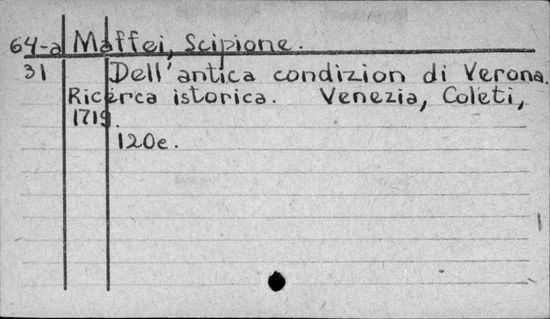 64-a Maffei, Scipione.
31 Dell'antica condizion di Verona.
Ricerca istorica. Venezia, Coleti,
1719.
120e.